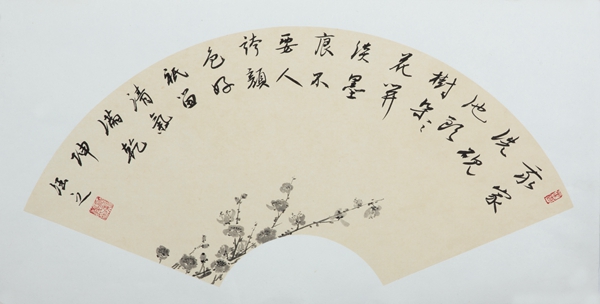 我家
洗硯
池頭
樹朵々
花开
淡墨
痕不
要人
誇顔
色好
祇留
清氣
滿乾
坤